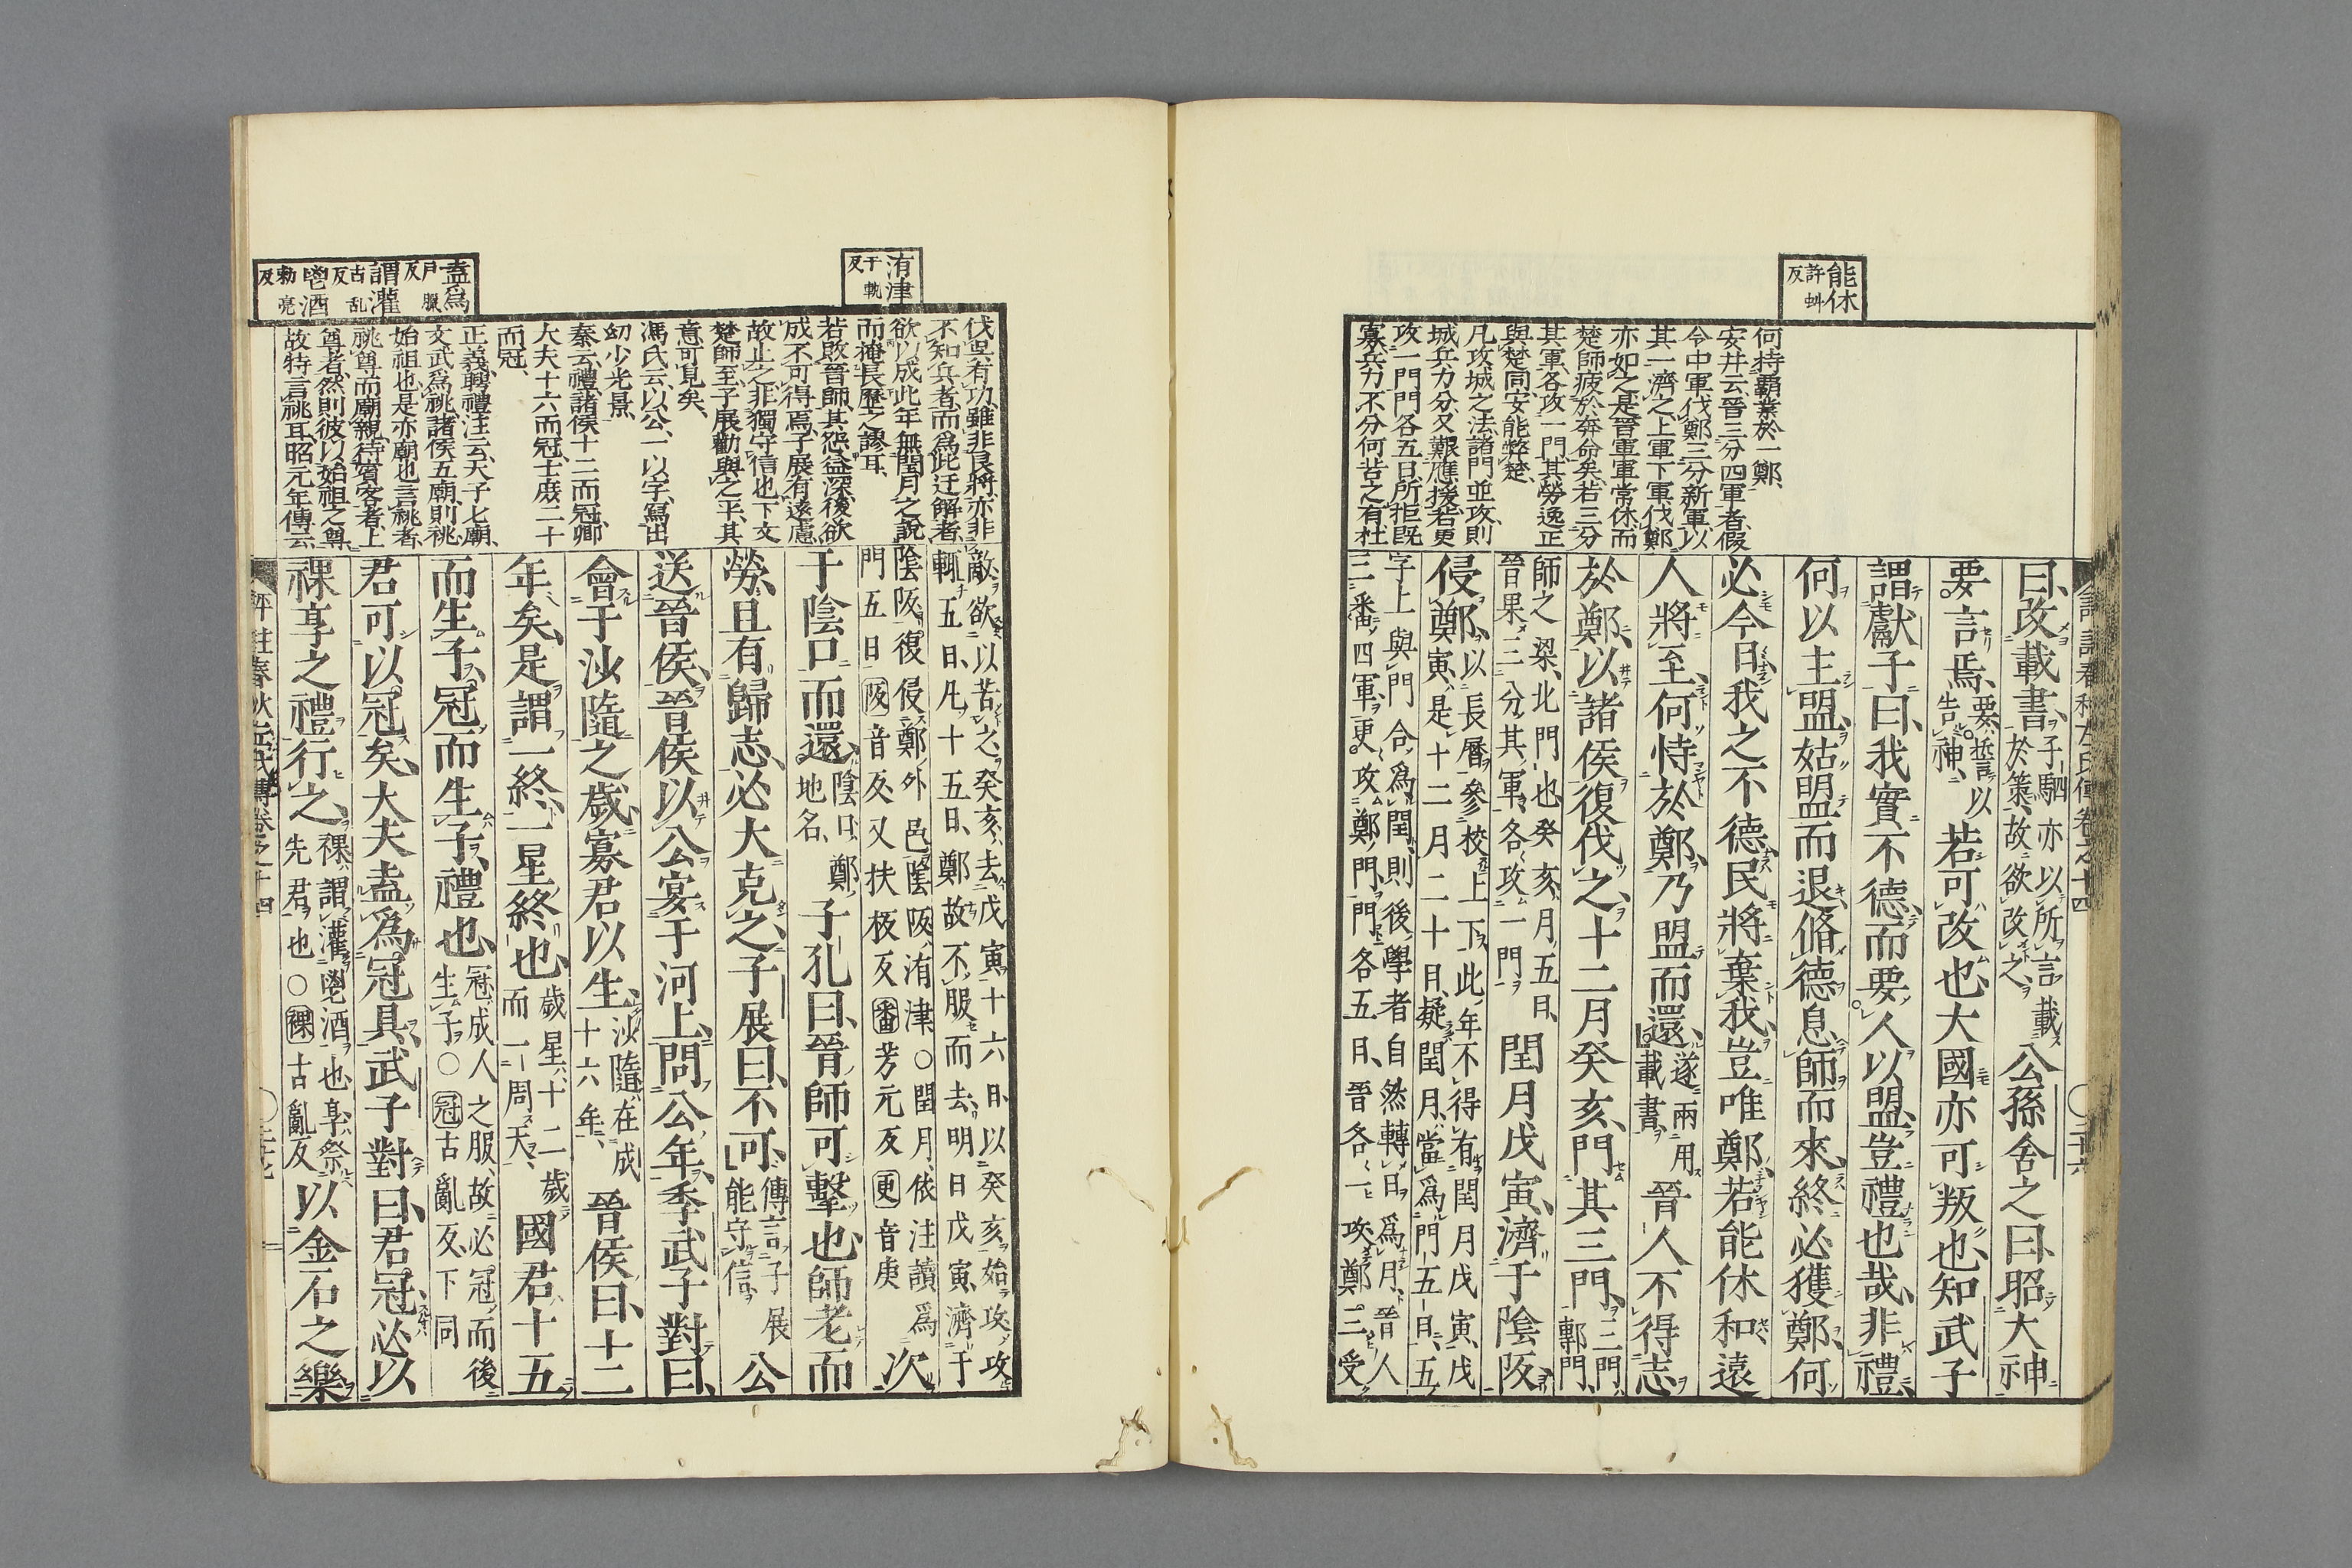 能休
許虯
反
何持霸業於一鄭、
安井云、晉三分四軍者、假
令中軍伐鄭、三分新軍、以
其一濟之、上軍下軍伐鄭
亦如之、是晉軍軍常休、而
楚師疲於奔命矣、若三分
其軍、各攻一門、其勞逸正
與楚同、安能弊楚、
凡攻城之法、諸門並攻、則
城兵力分、又艱應援、若更
攻一門、門各五日、所拒既
寡、兵力不分、何苦之有、杜
曰、改載書、子駟亦以所言載於策、故欲改之、公孫舍之曰、昭大神
要言焉、要誓以告神、若可改也、大國亦可叛也、知武子
謂獻子曰、我實不德、而要人以盟、豈禮也哉、非禮、
何以主盟、姑盟而退、脩德息師而來、終必獲鄭、何
必今日、我之不德、民將棄我、豈唯鄭、若能休和、遠
人將至、何恃於鄭、乃盟而還、遂兩用載書、晉人不得志
於鄭、以諸侯復伐之、十二月癸亥、門其三門、三門、鄟門、
師之梁、北門也、癸亥、月五日、晉果三分其軍、各攻一門、閏月、戊寅、濟于陰阪、
侵鄭、以長曆參校上下、此年不得有閏月戊寅、戊寅、是十二月二十日、疑閏月、當爲門五日、五
字上與門合爲閏、則後學者自然轉日爲月、晉人三番四軍、更攻鄭門、門各五日、晉各一攻、鄭三受
洧津
于軌
反
伐吳有功、雖非良將、亦非
不知兵者、而爲此迂解者、
欲以成此年無閏月之說、
而掩長歷之謬耳、
若敗晉師、其怨益深、後欲
成不可得焉、子展有遠慮、
故止之、非獨守信也、下文
楚師至、子展勸與之平、其
意可見矣、
馮氏云、以公一以字、寫出
幼少光景、
秦云、禮、諸侯十二而冠、卿
大夫十六而冠、士庶二十
而冠、
正義、聘禮注云、天子七廟、
文武爲祧、諸侯五廟、則祧
始祖也、是亦廟也、言祧者、
祧尊而廟親、待賓客者、上
尊者、然則彼以始祖之尊、
故特言祧耳、昭元年傳云
盍爲
戶臘
反
謂灌
古乱
反
鬯酒
勑亮
反
敵、欲以苦之、癸亥、去戊寅十六日、以癸亥始攻、攻輒五日、凡十五日、鄭故不服而去、明日戊寅、濟于
陰阪、復侵鄭外邑、陰阪、洧津○閏月、依注讀爲門五日 阪音反又扶板反 番芳元反 更音庚 次
于陰口而還、陰口、鄭地名、子孔曰、晉師可擊也、師老而
勞、且有歸志、必大克之、子展曰、不可、傳言子展能守信、公
送晉侯、晉侯以公宴于河上、問公年、季武子對曰、
會于沙隨之歲、寡君以生、沙隨、在成十六年、晉侯曰、十二
年矣、是謂一終、一星終也、歲星、十二歲而一周天、國君十五
而生子、冠而生子、禮也、冠、成人之服、故必冠而後生子○冠古亂反、下同
君可以冠矣、大夫盍爲冠具、武子對曰、君冠、必以
祼享之禮行之、祼、謂灌鬯酒也、享、祭先君也○祼古亂反 以金石之樂
評註春秋左氏傳卷之十四